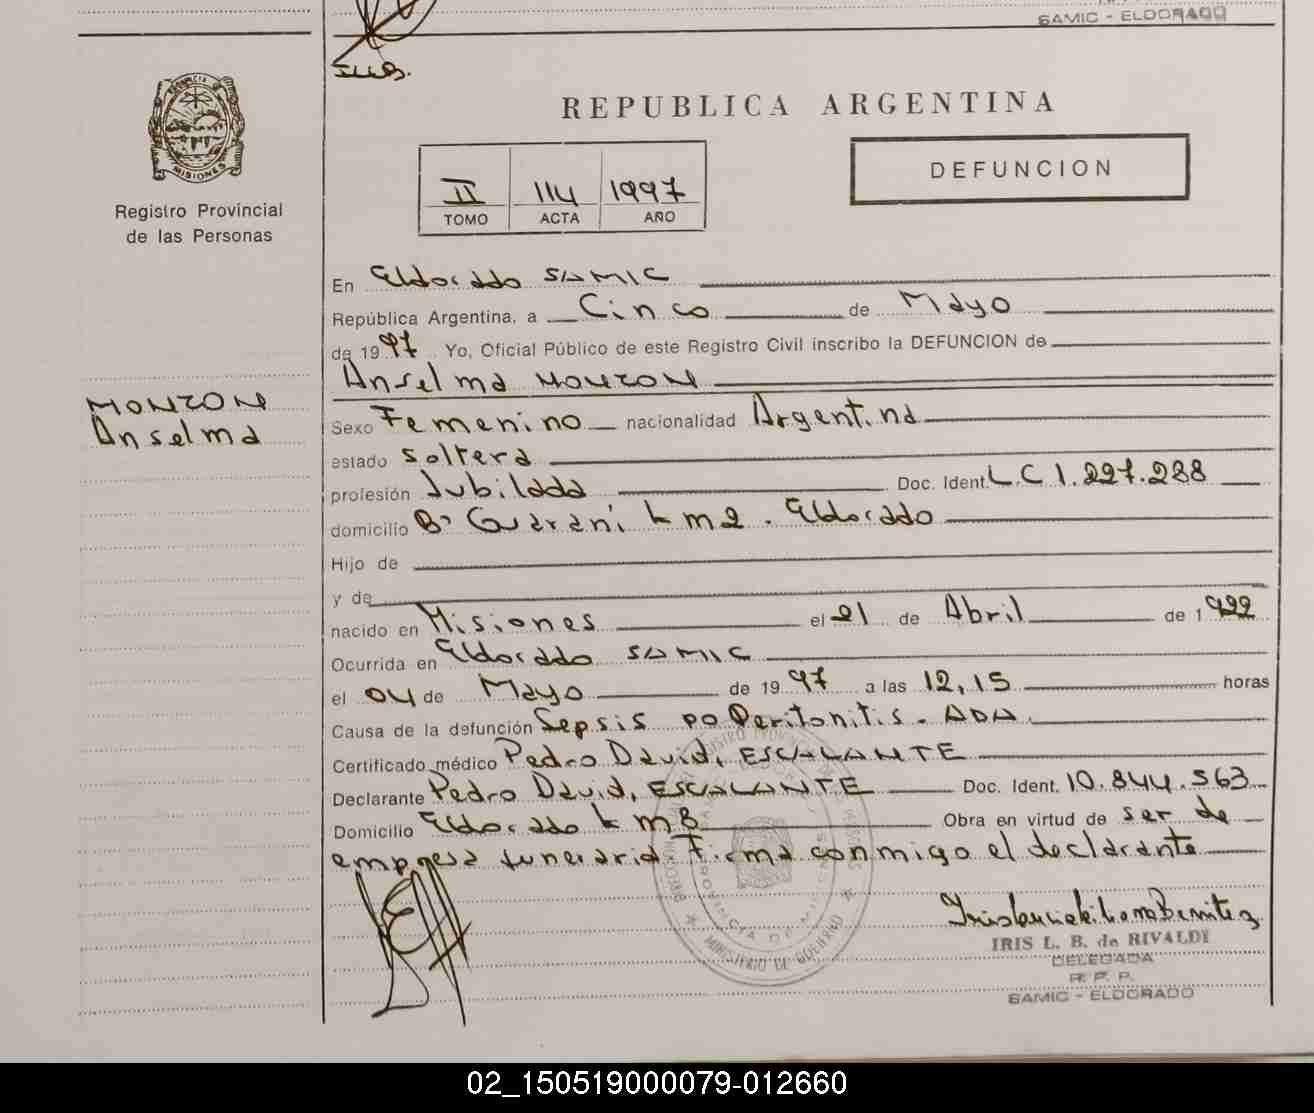 SAMIC - ELDORADO
REPUBLICA ARGENTINA
MISIONES
Registro Provincial
de las Personas
II 114 1997
TOMO ACTA AÑO
DEFUNCION
En Eldorado SAMIC
República Argentina, a Cinco de Mayo
de 1997 Yo, Oficial Público de este Registro Civil inscribo la DEFUNCION de
Anselma MONZON
MONZON
Anselma
Sexo Femenino nacionalidad Argentina
estado Soltera
profesión Jubilada Doc. Ident. L.C 1.227.288
domicilio Bº Guaraní km2. Eldorado
Hijo de
y de
nacido en Misiones el 21 de Abril de 1922
Ocurrida en Eldorado SAMIC
el 04 de Mayo de 1997 a las 12,15 horas
Causa de la defunción Sepsis po Peritonitis.
Certificado médico Pedro David, ESCALANTE
Declarante Pedro David, ESCALANTE Doc. Ident. 10.844.563
Domicilio Eldorado km8 Obra en virtud de ser de
empresa funeraria. Firma conmigo el declarante
MINISTERIO DE GOBIERNO
IRIS L. B. de RIVALDI
DELEGADA
R. P. P.
SAMIC - ELDORADO
02_150519000079-012660